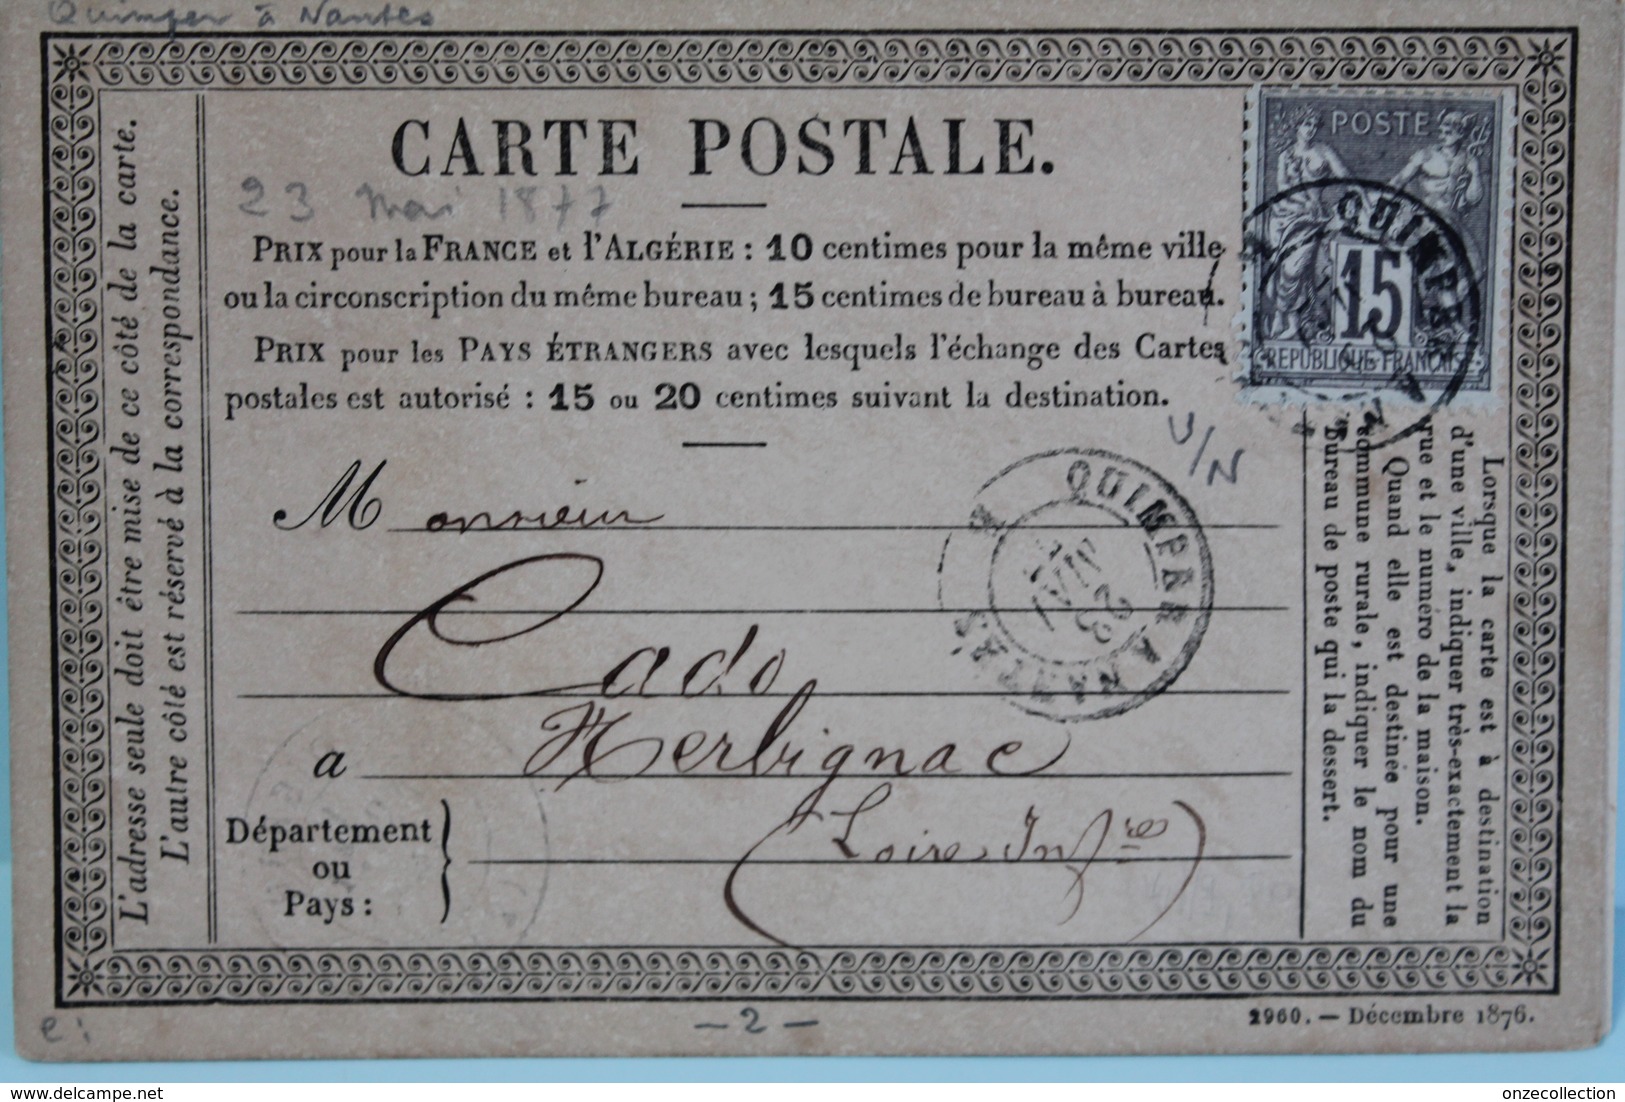 Quimper à Nantes
CARTE POSTALE.
23 Mai 1877
PRIX pour la FRANCE et l'ALGÉRIE : 10 centimes pour la même ville
ou la circonscription du même bureau ; 15 centimes de bureau à bureau.
PRIX pour les PAYS ÉTRANGERS avec lesquels l'échange des Cartes
postales est autorisé : 15 ou 20 centimes suivant la destination.
L'adresse seule doit être mise de ce côté de la carte.
L'autre côté est réservé à la correspondance.
POSTE
15
REPUBLIQUE FRANÇAISE
QUIMPER A
U/N
QUIMPER A NANTES
23
MAI
Monsieur
Cado
a Herbignac
Département
ou
Pays :
(Loire Infres)
Lorsque la carte est à destination
d'une ville, indiquer très-exactement la
rue et le numéro de la maison.
Quand elle est destinée pour une
commune rurale, indiquer le nom du
bureau de poste qui la dessert.
e :
— 2 —
2960. — Décembre 1876.
delcampe.net
onzecollection